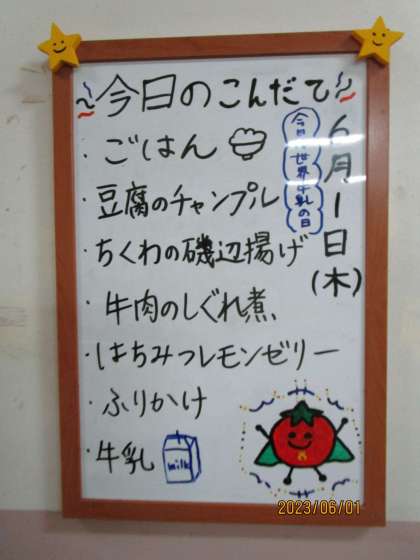 今日のこんだて
6月1日(木)
今日は世界牛乳の日
・ごはん
・豆腐のチャンプル
・ちくわの磯辺揚げ
・牛肉のしぐれ煮
・はちみつレモンゼリー
・ふりかけ
・牛乳
milk
2023/06/01